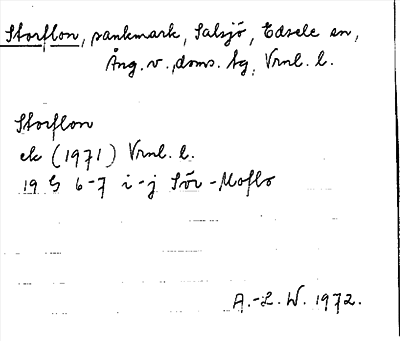 Storflon, sankmark, Salsjö, Edsele sn,
Ång. v. doms. tg, Vrnl. l.
Storflon
ek (1971) Vrnl. l.
19 G 6-7 i-j Sör-Moflo
A.-L. W. 1972.